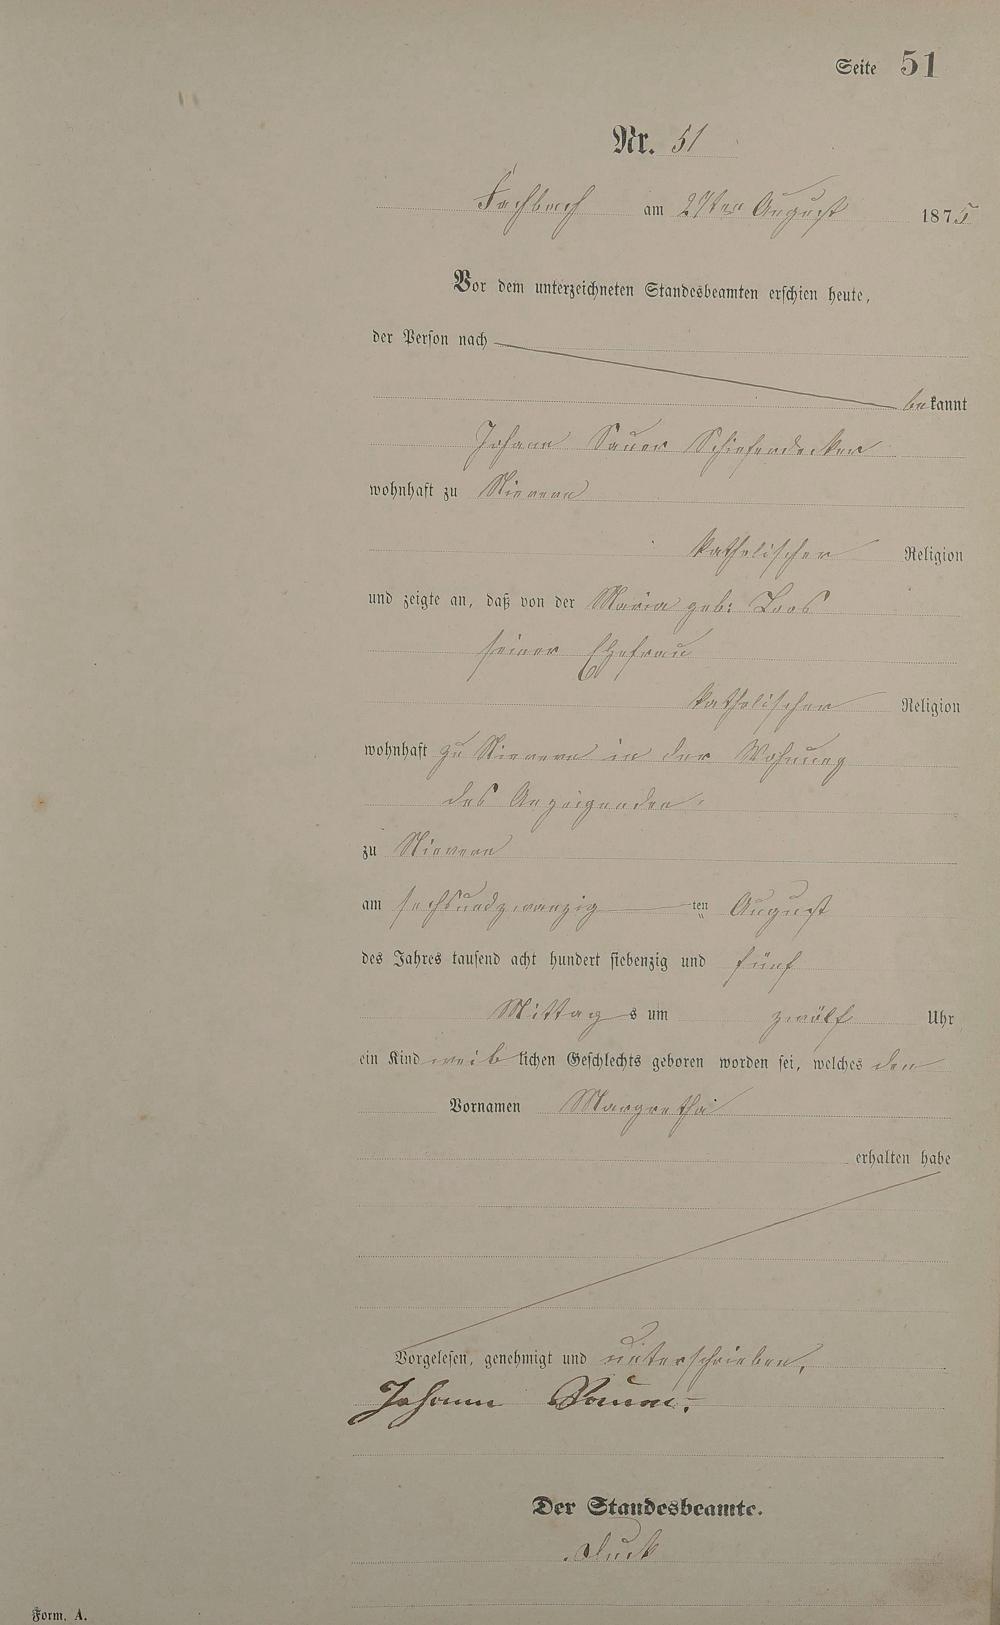 Seite 51
Nr. 51
Fachbach am 27ten August 1875
Vor dem unterzeichneten Standesbeamten erschien heute,
der Person nach
bekannt
Johann Sauer Schieferdecker
wohnhaft zu Nievern
katholischer Religion
und zeigte an, daß von der Maria geb: Loos
seiner Ehefrau
katholischer Religion
wohnhaft zu Nievern in der Wohnung
des Anzeigenden
zu Nievern
am sechsundzwanzig ten August
des Jahres tausend acht hundert siebenzig und fünf
Mittags um zwölf Uhr
ein Kind weiblichen Geschlechts geboren worden sei, welches den
Vornamen Margretha
erhalten habe
Vorgelesen, genehmigt und unterschrieben,
Johann Sauer
Der Standesbeamte.
Form. A.